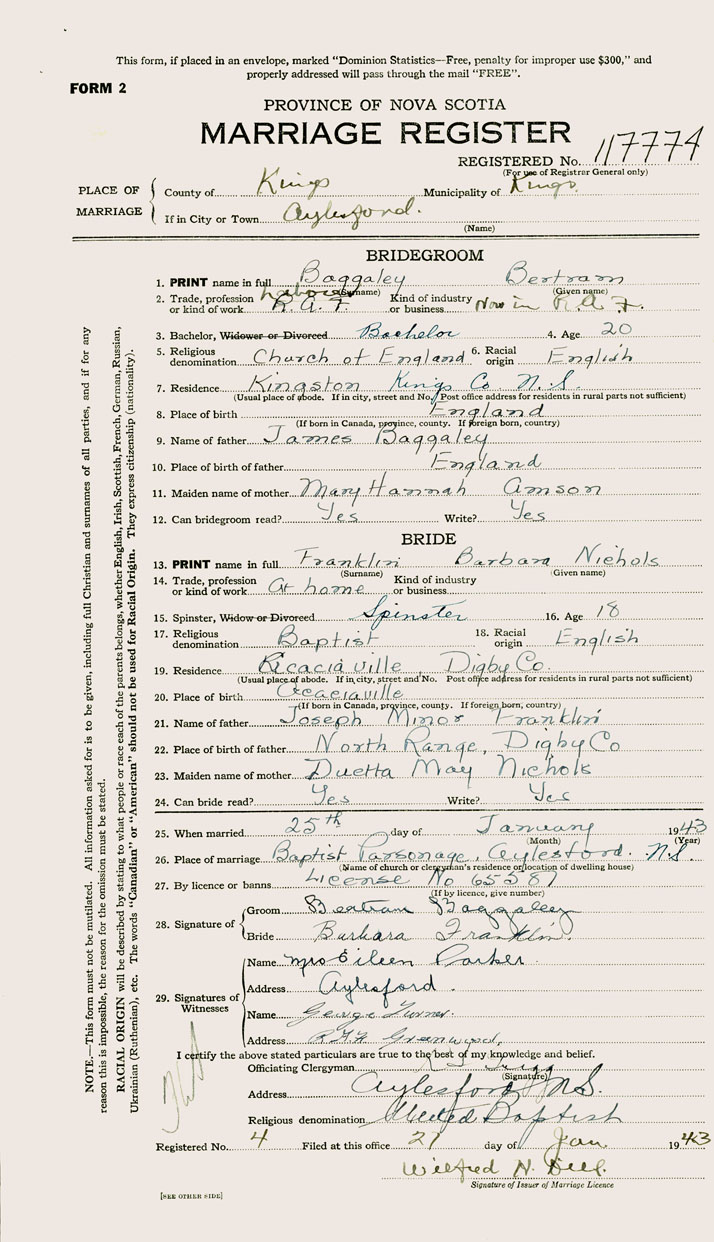 This form, if placed in an envelope, marked "Dominion Statistics—Free, penalty for improper use $300," and
properly addressed will pass through the mail "FREE".
FORM 2
PROVINCE OF NOVA SCOTIA
MARRIAGE REGISTER
REGISTERED No. 117774
(For use of Registrar General only)
PLACE OF MARRIAGE
County of Kings Municipality of Kings
If in City or Town Aylesford.
(Name)
BRIDEGROOM
1. PRINT name in full Baggaley Bertram
(Surname) (Given name)
2. Trade, profession or kind of work R.A.F. Kind of industry or business Now in R.A.F.
3. Bachelor, Widower or Divorced Bachelor 4. Age 20
5. Religious denomination Church of England 6. Racial origin English
7. Residence Kingston Kings Co. N.S.
(Usual place of abode. If in city, street and No. Post office address for residents in rural parts not sufficient)
8. Place of birth England
(If born in Canada, province, county. If foreign born, country)
9. Name of father James Baggaley
10. Place of birth of father England
11. Maiden name of mother Mary Hannah Amson
12. Can bridegroom read? Yes Write? Yes
BRIDE
13. PRINT name in full Franklin Barbara Nichols
(Surname) (Given name)
14. Trade, profession or kind of work At home Kind of industry or business
15. Spinster, Widow or Divorced Spinster 16. Age 18
17. Religious denomination Baptist 18. Racial origin English
19. Residence Acaciaville, Digby Co.
(Usual place of abode. If in city, street and No. Post office address for residents in rural parts not sufficient)
20. Place of birth Acaciaville
(If born in Canada, province, county. If foreign born, country)
21. Name of father Joseph Minor Franklin
22. Place of birth of father North Range, Digby Co
23. Maiden name of mother Duetta May Nichols
24. Can bride read? Yes Write? Yes
25. When married 25th day of January 1943
(Month) (Year)
26. Place of marriage Baptist Parsonage, Aylesford. N.S.
(Name of church or clergyman's residence or location of dwelling house)
27. By licence or banns License No 65587
(If by licence, give number)
28. Signature of
Groom Bertram Baggaley
Bride Barbara Franklin.
29. Signatures of Witnesses
Name Mrs Eileen Parker.
Address Aylesford.
Name George Turner.
Address R.A.F. Greenwood,
I certify the above stated particulars are true to the best of my knowledge and belief.
Officiating Clergyman
(Signature)
Address Aylesford N.S.
Religious denomination United Baptist
Registered No. 4 Filed at this office 27 day of Jan 1943
Wilfred H. Dill.
Signature of Issuer of Marriage Licence
[SEE OTHER SIDE]
NOTE.—This form must not be mutilated. All information asked for is to be given, including full Christian and surnames of all parties, and if for any
reason this is impossible, the reason for the omission must be stated.
RACIAL ORIGIN will be described by stating to what people or race each of the parents belongs, whether English, Irish, Scottish, French, German, Russian,
Ukrainian (Ruthenian), etc. The words "Canadian" or "American" should not be used for Racial Origin. They express citizenship (nationality).